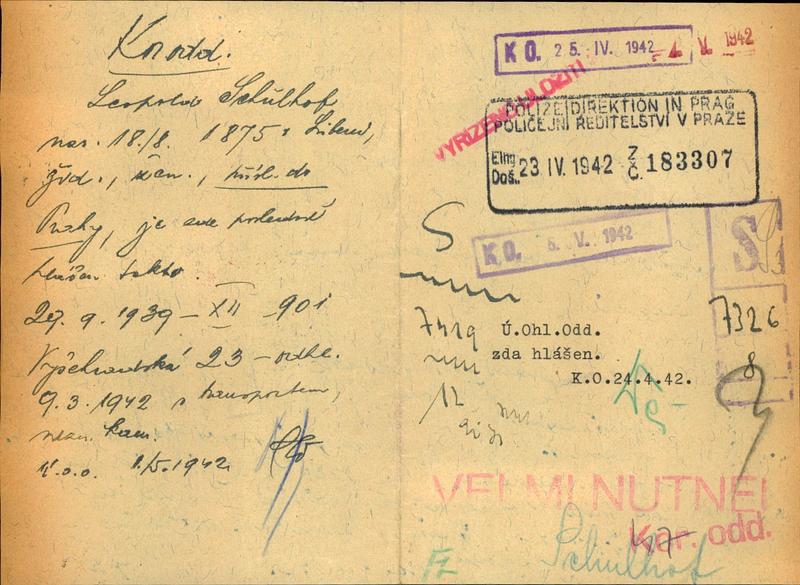 Kar. odd.
Leopold Schulhof
nar. 18./8. 1875 v Libni,
žid., žen., přísl. do
Prahy, je zde posledně
hlášen takto.
27. 9. 1939 – XII 901
Vyšehradská 23 – odhl.
9.3.1942 s transportem,
nezn. kam.
1./5.1942
K O. 25. IV. 1942
V. 1942
VYŘÍZENO ULOŽITI
POLIZEIDIREKTION IN PRAG
POLICEJNÍ ŘEDITELSTVÍ V PRAZE
Eing.
Doš. 23 IV. 1942 Z Č. 183307
K O. 5. V. 1942
S
7326
8
7419
12
Ú.Ohl.Odd.
zda hlášen.
K.O.24.4.42.
VELMI NUTNÉ!
Kar. odd.
Schulhof